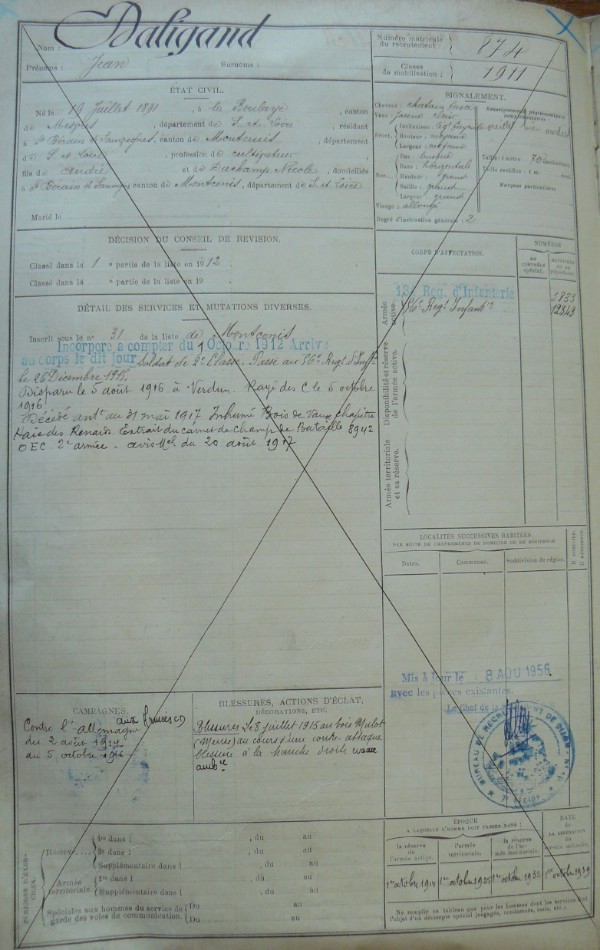 Nom : Daligand
Prénoms : Jean Surnoms :
Numéro matricule du recrutement : 874
Classe de mobilisation : 1911
ÉTAT CIVIL.
Né le 19 Juillet 1891, à la Boulaye, canton
de Mesvres, département de S. et Loire, résidant
à St Berain s/ Sanvignes, canton de Montcenis, département
d S. et Loire, profession de cultivateur
fils de et de Duchamp Nicole, domiciliés
à St Berain s/ Sanvignes canton de Montcenis, département de S. et Loire
Marié le
SIGNALEMENT.
Cheveux : chatain foncé
Yeux :
Front.
Inclinaison :
Hauteur : moyenne
Largeur : moyenne
Nez.
Dos : busqué
Base : horizontale
Hauteur : grand
Saillie : grand
Largeur : grand
Visage : allongé
Renseignements physionomiques complémentaires :
Taille : 1 mètre 70 centimètres
Taille rectifiée : 1 m. cent.
Marques particulières
Degré d'instruction générale : 2
DÉCISION DU CONSEIL DE REVISION.
Classé dans la 1 e partie de la liste en 1912
Classé dans la e partie de la liste en 19
CORPS D'AFFECTATION.
NUMÉROS
Armée active.
13e Rég. d'Infanterie
56e Régt Infantie
Disponibilité et réserve de l'armée active.
Armée territoriale et sa réserve.
DÉTAIL DES SERVICES ET MUTATIONS DIVERSES.
Inscrit sous le no 31 de la liste de Montcenis
Incorporé à compter du Octobre 1912 Arrivé
au corps le dit jour Soldat de 2e Classe. Passé au 56e Régt d'Inf.
le 26 Décembre
Disparu le 5 août 1916 à Verdun. Rayé des C le 5 octobre
1916
Décédé antt au 31 mai 1917 Inhumé Bois de Vaux Chapitre
Haie des Renards Extrait du carnet de Champ de Bataille 8942
OEC 2e armée. avis Mel du 20 août 1917
LOCALITÉS SUCCESSIVES HABITÉES
PAR SUITE DE CHANGEMENTS DE DOMICILE OU DE RÉSIDENCE
Dates. Communes. Subdivision de région.
Mis à jour le 8 AOU 1956
avec les pièces existantes.
Le Chef de
BUREAU DE RECRUTEMENT DE DIJON
CAMPAGNES.
Contre l'allemagne aux armées
du 2 août 1914
au 5 octobre 1916
BLESSURES, ACTIONS D'ÉCLAT,
DÉCORATIONS, ETC.
Blessures : Le 8 juillet 1915 au bois Mulot
(Meuse) au cours d'une contre attaque
blessure à la hanche droite
Réserve.
1re dans l , du au
2e dans l , du au
Supplémentaire dans l , du au
Armée territoriale.
1re dans l , du au
Supplémentaire dans l , du au
Spéciales aux hommes du service de garde des voies de communication.
Du au
Du au
ÉPOQUE
À LAQUELLE L'HOMME DOIT PASSER DANS :
la réserve de l'armée active.
l'armée territoriale.
la réserve de l'armée territoriale.
DATE DE LA LIBÉRATION DU service militaire.
1er octobre 1914 1er octobre 1925 1er octobre 1932 1er octobre 1939